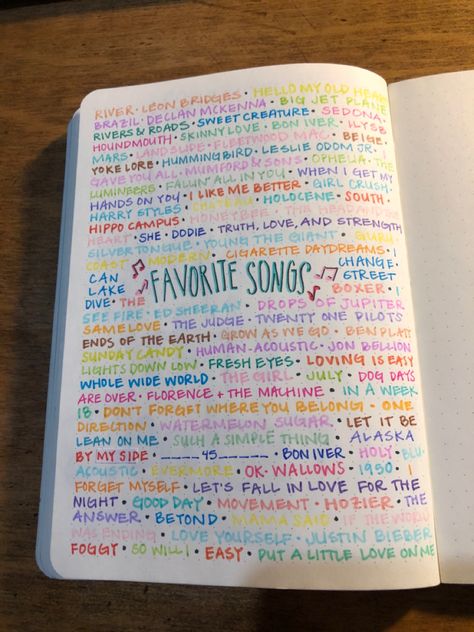 RIVER • LEON BRIDGES • HELLO MY OLD HEART
BRAZIL • DECLAN MCKENNA • BIG JET PLANE
RIVERS & ROADS • SWEET CREATURE • SEDONA •
HOUNDMOUTH • SKINNY LOVE • BON IVER • ILYSB
MARS • LANDSLIDE • FLEETWOOD MAC • BEIGE •
YOKE LORE • HUMMINGBIRD • LESLIE ODOM JR. • I
GAVE YOU ALL • MUMFORD & SONS • OPHELIA • THE
LUMINEERS • FALLIN' ALL IN YOU • WHEN I GET MY
HANDS ON YOU • I LIKE ME BETTER • GIRL CRUSH •
HARRY STYLES • CHATEAU • HOLOCENE • SOUTH •
HIPPO CAMPUS • HONEYBEE • THE HEAD AND THE
HEART • SHE • DODIE • TRUTH, LOVE, AND STRENGTH
SILVERTONGUE • YOUNG THE GIANT • GURU •
COAST MODERN • CIGARETTE DAYDREAMS • I
CAN CHANGE •
LAKE FAVORITE SONGS STREET
DIVE • THE BOXER • I
SEE FIRE • ED SHEERAN • DROPS OF JUPITER
SAME LOVE • THE JUDGE • TWENTY ONE PILOTS
ENDS OF THE EARTH • GROW AS WE GO • BEN PLATT
SUNDAY CANDY • HUMAN-ACOUSTIC • JON BELLION
LIGHTS DOWN LOW • FRESH EYES • LOVING IS EASY
WHOLE WIDE WORLD • THE GIRL • JULY • DOG DAYS
ARE OVER • FLORENCE + THE MACHINE • IN A WEEK
18 • DON'T FORGET WHERE YOU BELONG • ONE
DIRECTION • WATERMELON SUGAR • LET IT BE
LEAN ON ME • SUCH A SIMPLE THING • ALASKA
BY MY SIDE • _____45_____ • BON IVER • HOLY • BLU•
ACOUSTIC • EVERMORE • OK • WALLOWS • 1950 • I
FORGET MYSELF • LET'S FALL IN LOVE FOR THE
NIGHT • GOOD DAY • MOVEMENT • HOZIER • THE
ANSWER • BEYOND • MAMA SAID • IF THE WORLD
WAS ENDING • LOVE YOURSELF • JUSTIN BIEBER
FOGGY • SO WILL I • EASY • PUT A LITTLE LOVE ON ME